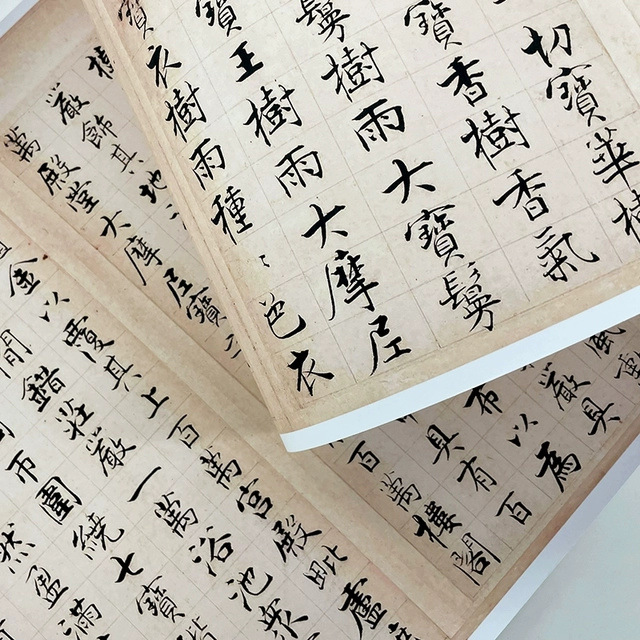 切寶華樹
寶香樹香氣
鬘樹雨大寶鬘
寶王樹雨大摩尼
寶衣樹雨種〻色衣
嚴具
布以為
具有百
百萬樓閣
嚴飾其地
萬殿堂大摩尼寶
金以覆其上百萬宮殿毗盧
間錯莊嚴一萬浴池衆
帀圍繞七寶階
然盈滿